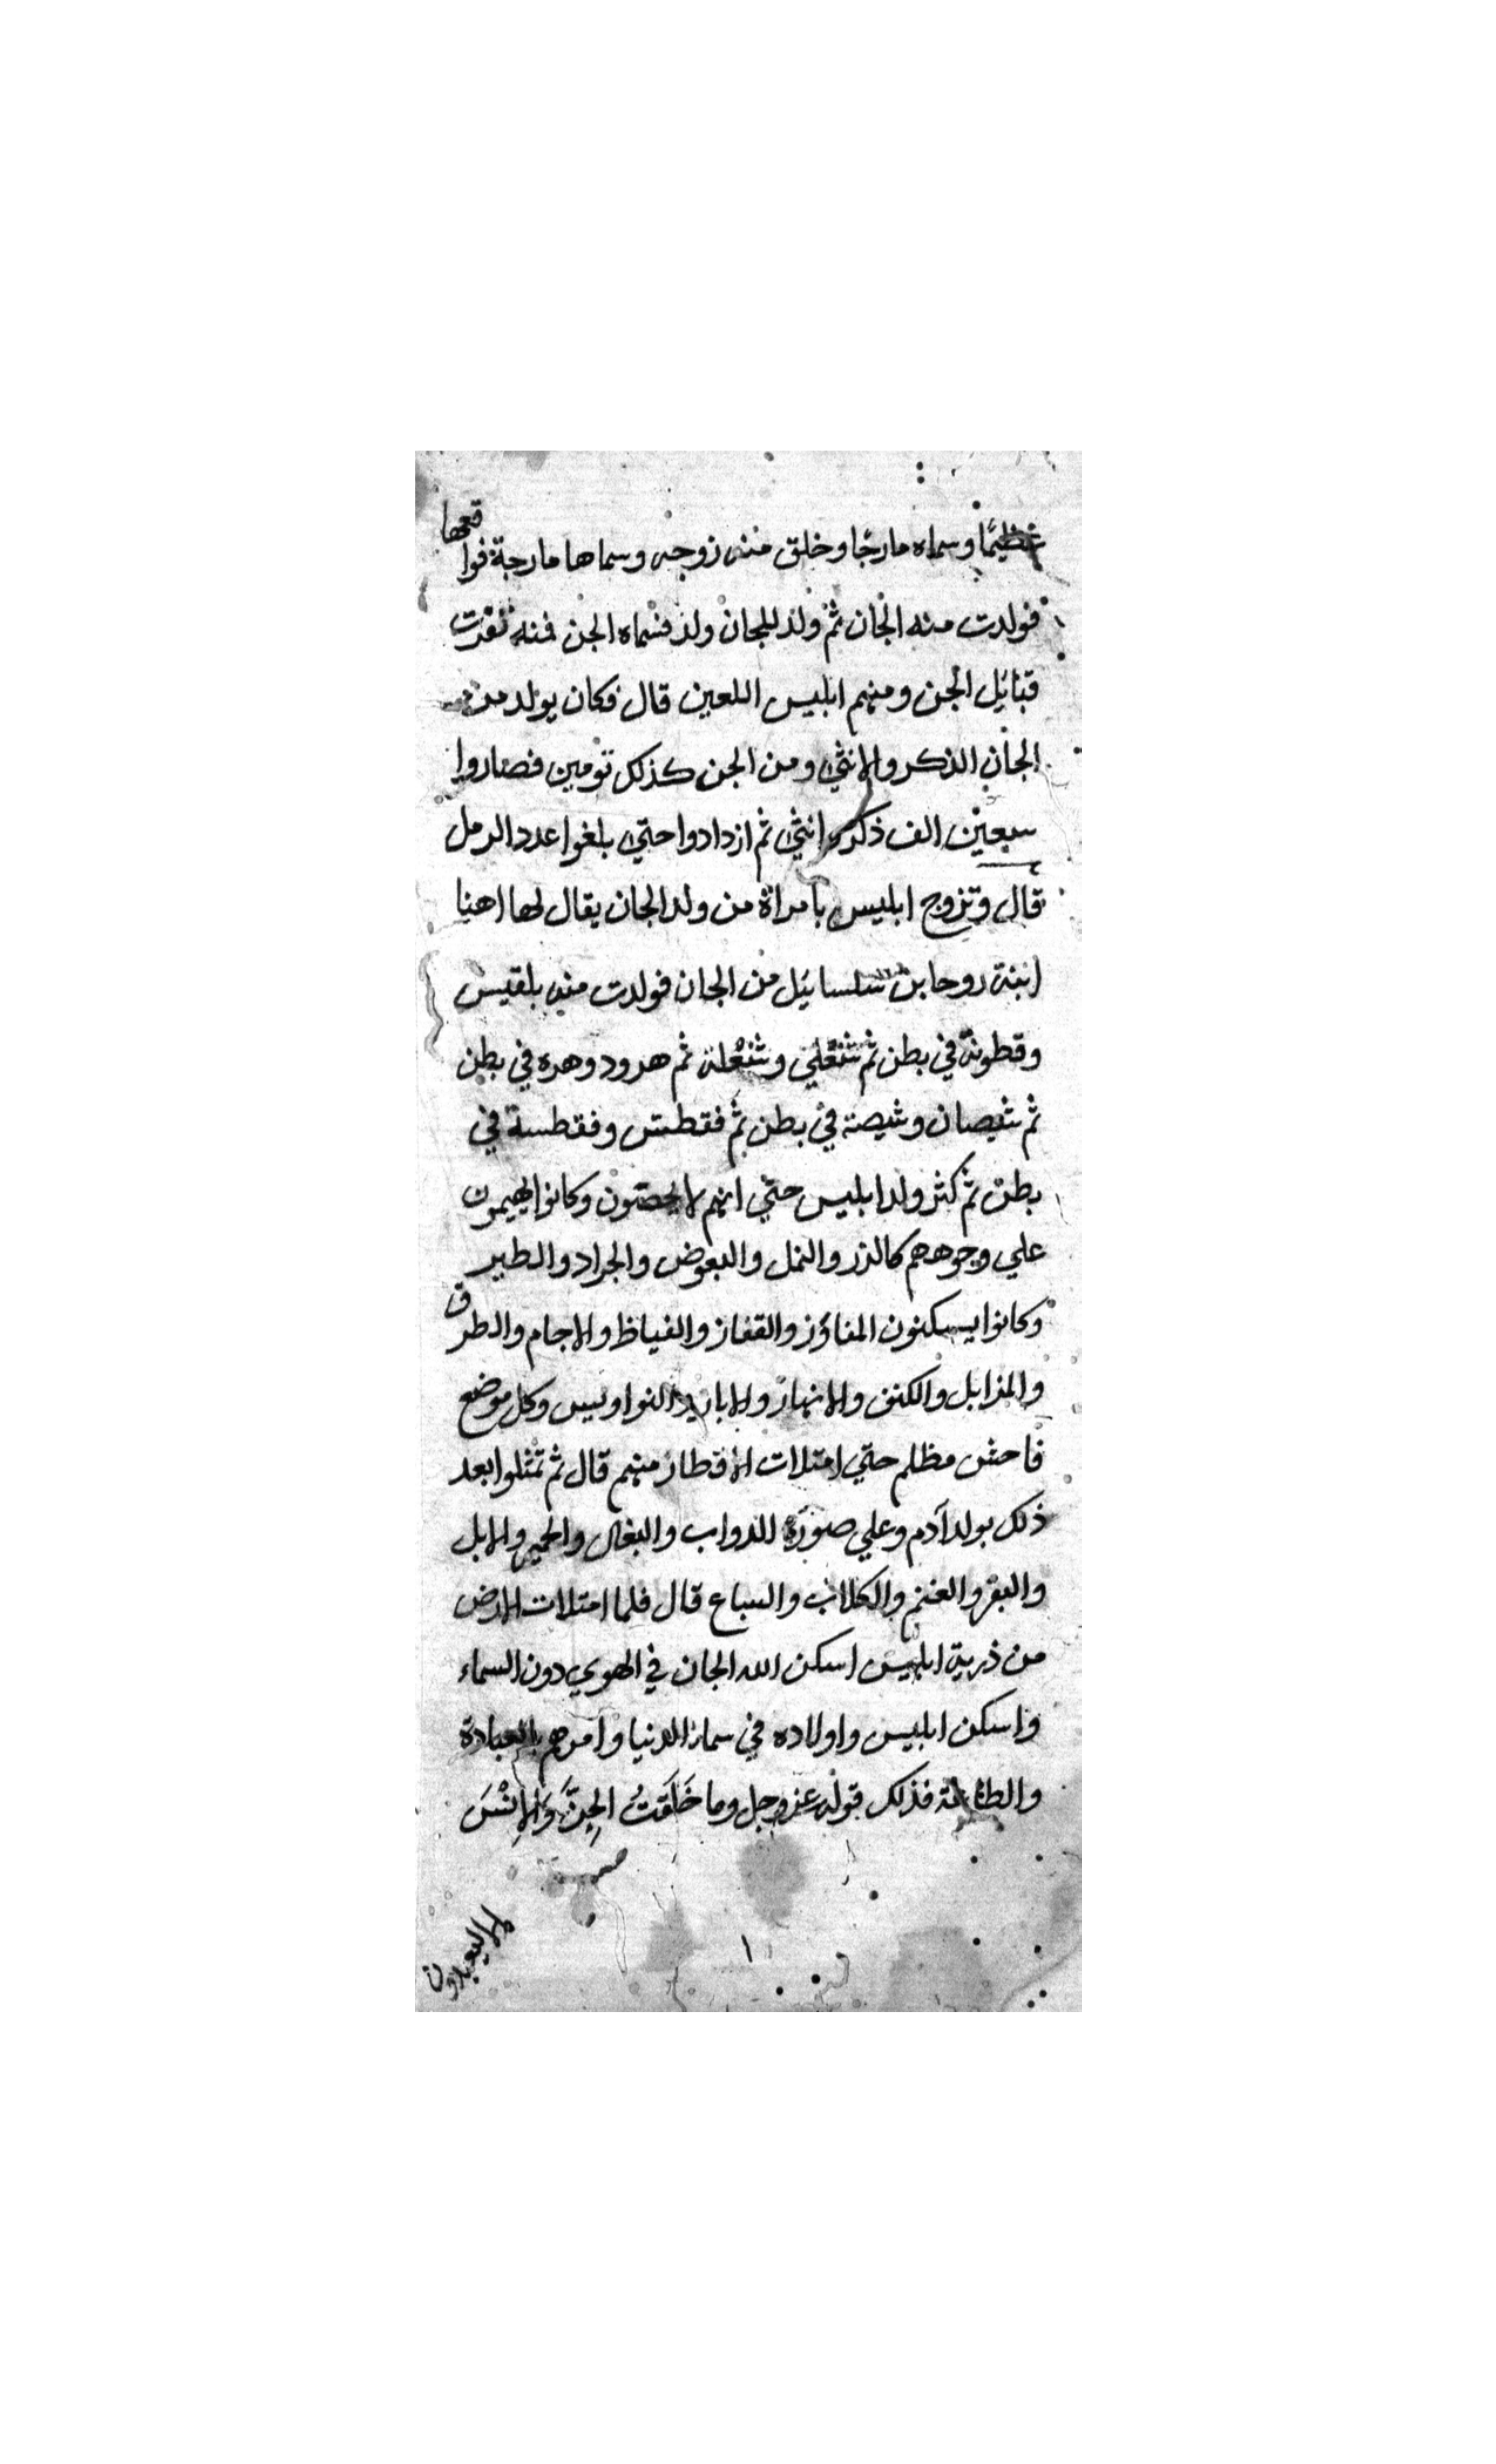 عظيمًا وسماه مارجًا وخلق منه زوجه وسماها مارجة فواقعها
فولدت منه الجان ثم ولد للجان ولد فسماه الجن فمنه تفرعت
قبائيل الجن ومنهم ابليس اللعين قال فكان يولد من
الجان الذكر والانثي ومن الجن كذلك تومين فصاروا
سبعين الف ذكر وانثي ثم ازدادوا حتي بلغوا عدد الرمل
قال وتزوج ابليس بامراة من ولد الجان يقال لها
ابنة روحا بن سلسائيل من الجان فولدت منه بلقيس
وقطونة في بطن ثم وشعلة ثم هدود وهده في بطن
ثم شيصان وشيصة في بطن ثم فقطس وفقطسة في
بطن ثم كثر ولد ابليس حتي انهم لا يحصون وكانوا يهيمون
علي وجوههم كالذر والنمل والبعوض والجراد والطير
وكانوا يسكنون المفاؤز والقفاز والغياظ والاجام والطرق
والمزابل والكنف والانهار والابار والنواويس وكل موضع
فاحش مظلم حتي امتلات الاقطار منهم قال ثم تمثلوا بعد
ذلك بولد آدم وعلي صورة الدواب والبغال والحمير والابل
والبقر والغنم والكلاب والسباع قال فلما امتلات الارض
من ذرية ابليس اسكن الله الجان في الهوي دون السماء
واسكن ابليس واولاده في سماء الدنيا وامرهم بالعبادة
والطاعة فذلك قوله عز وجل وما خَلَقَتُ الجِنَّ وَالاِنْسَ
الا ليعبدون